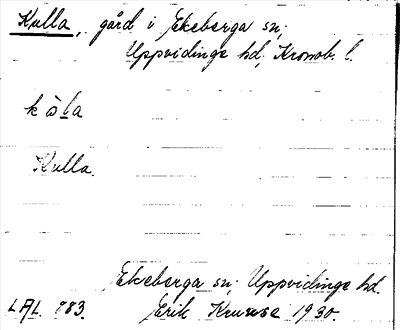 Kulla, gård i Ekeberga sn;
Uppvidinge hd, Kronob. l.
Kulla.
Ekeberga sn, Uppvidinge hd.
Erik Kruuse 1930.